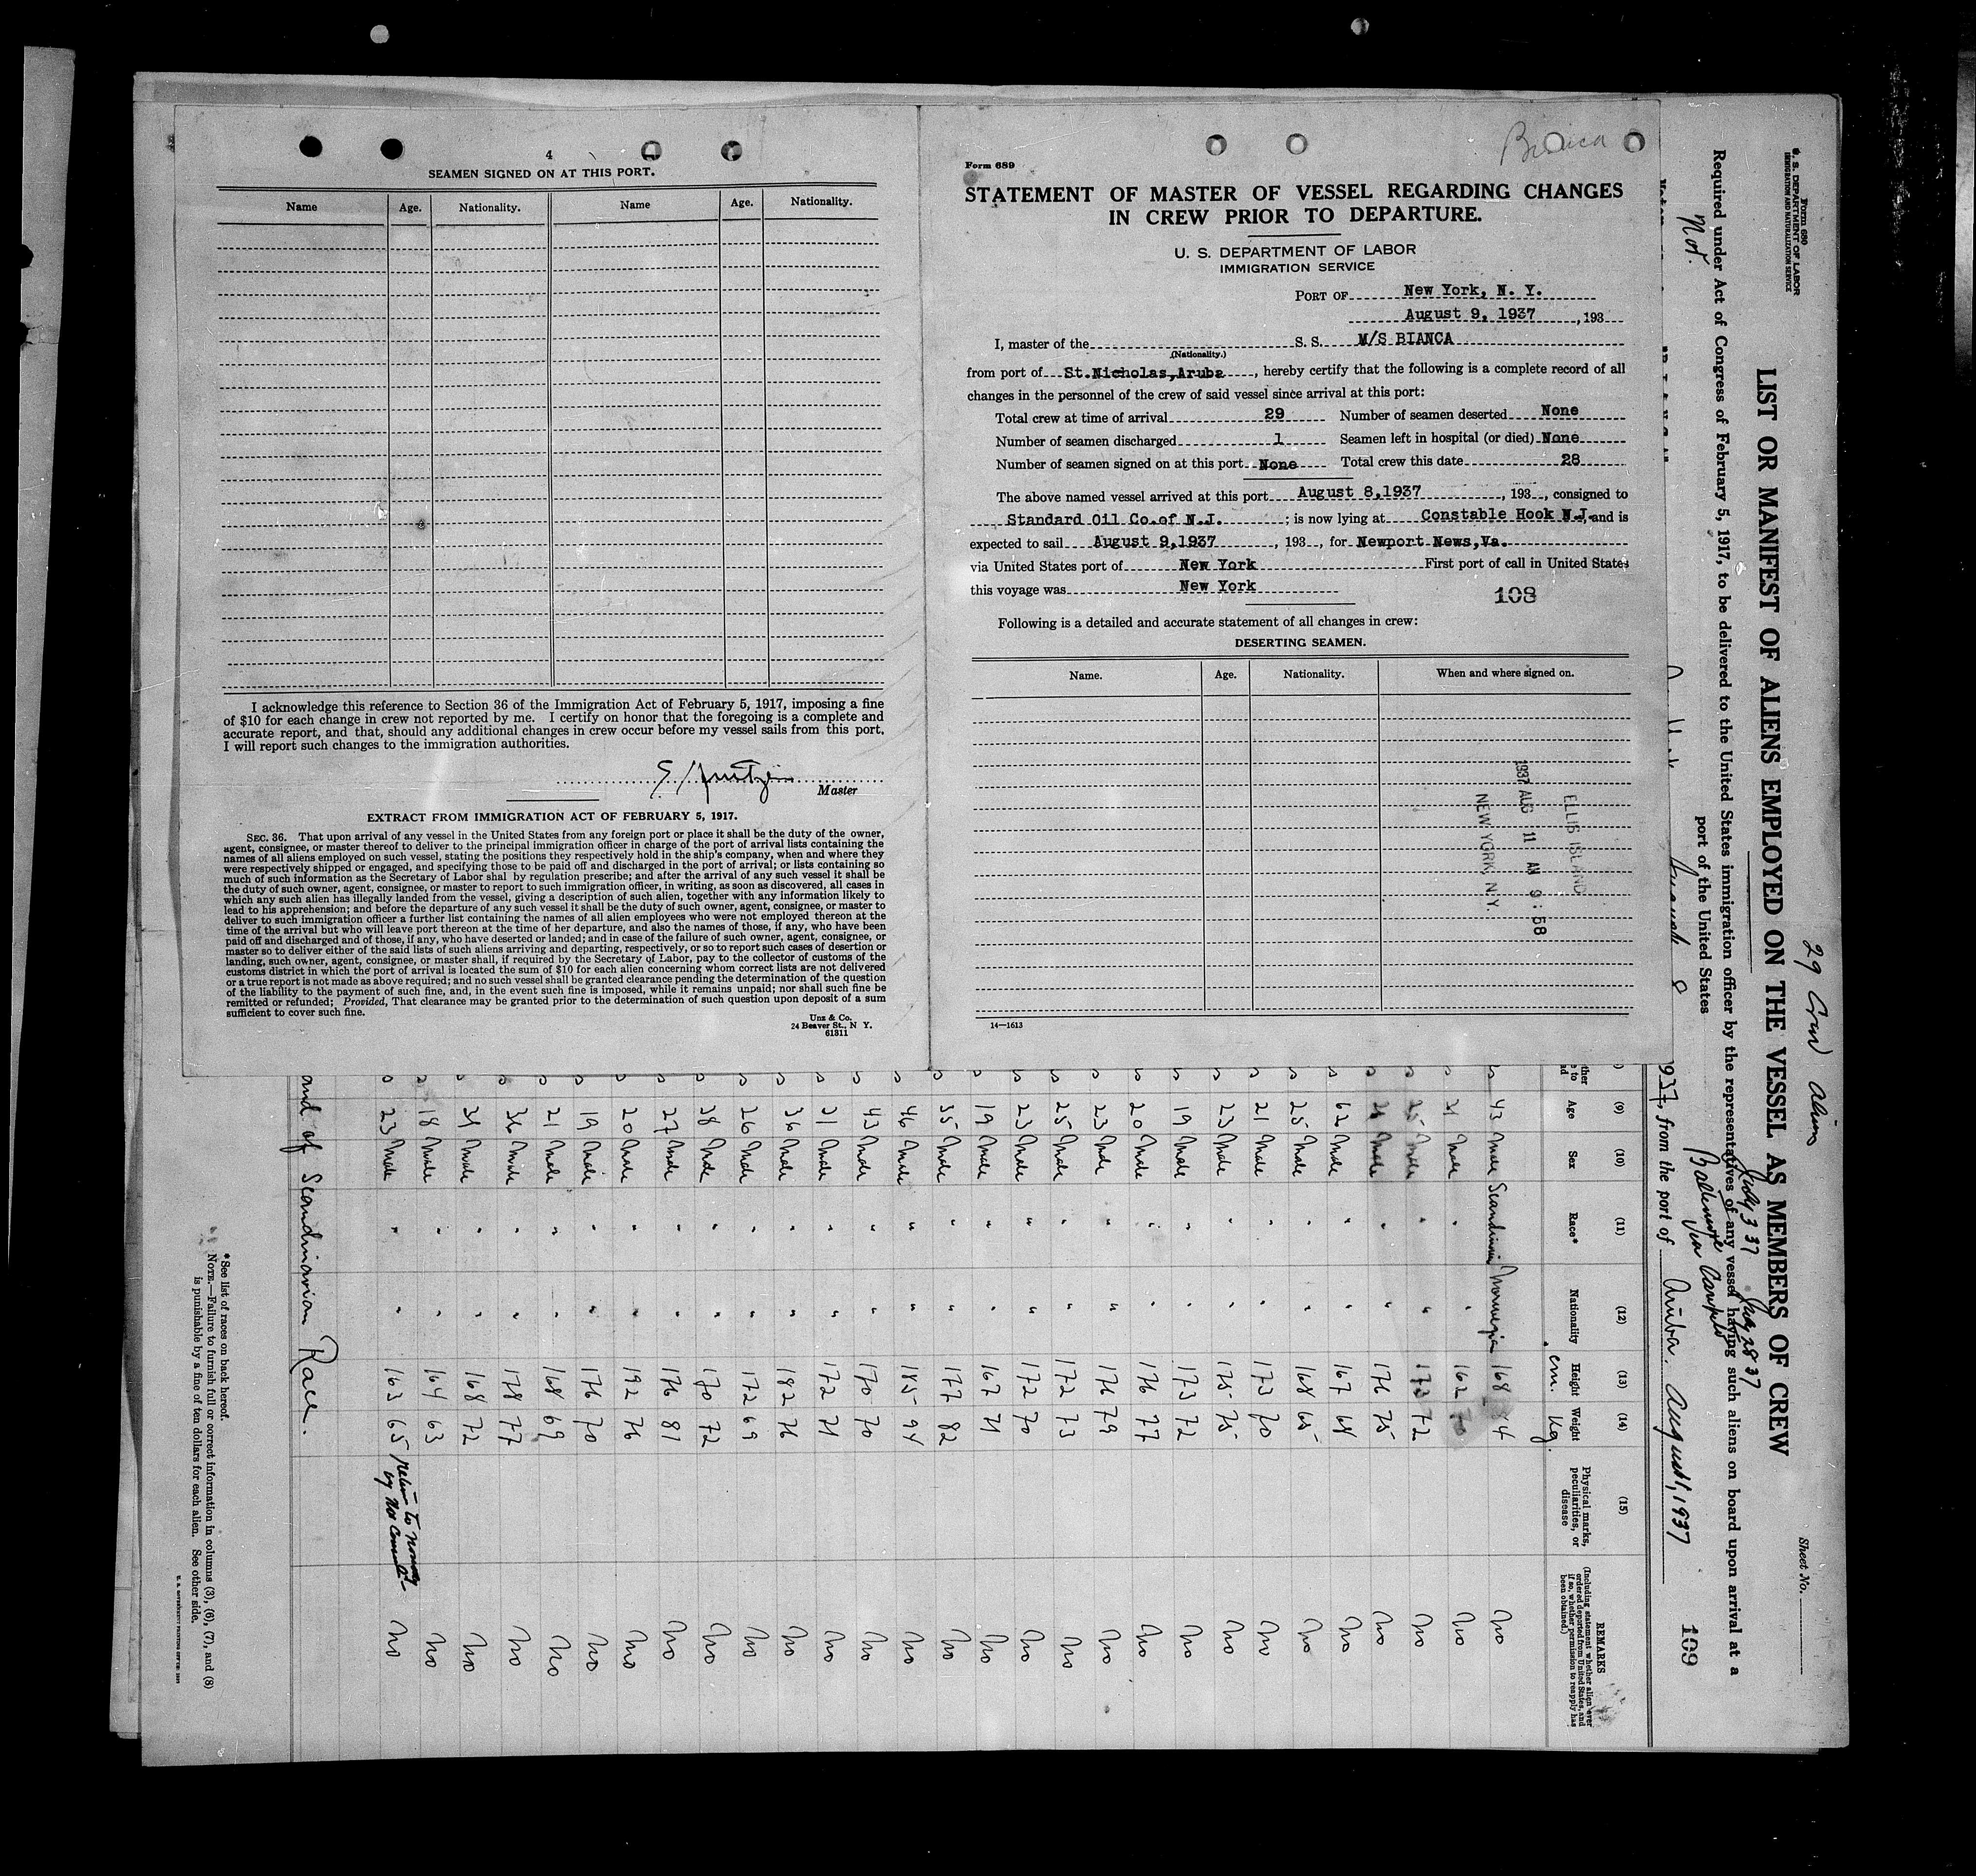 4
SEAMEN SIGNED ON AT THIS PORT.
Name Age. Nationality. Name Age. Nationality.
I acknowledge this reference to Section 36 of the Immigration Act of February 5, 1917, imposing a fine
of $10 for each change in crew not reported by me. I certify on honor that the foregoing is a complete and
accurate report, and that, should any additional changes in crew occur before my vessel sails from this port,
I will report such changes to the immigration authorities.
Master
EXTRACT FROM IMMIGRATION ACT OF FEBRUARY 5, 1917.
SEC. 36. That upon arrival of any vessel in the United States from any foreign port or place it shall be the duty of the owner,
agent, consignee, or master thereof to deliver to the principal immigration officer in charge of the port of arrival lists containing the
names of all aliens employed on such vessel, stating the positions they respectively hold in the ship's company, when and where they
were respectively shipped or engaged, and specifying those to be paid off and discharged in the port of arrival; or lists containing so
much of such information as the Secretary of Labor shal by regulation prescribe; and after the arrival of any such vessel it shall be
the duty of such owner, agent, consignee, or master to report to such immigration officer, in writing, as soon as discovered, all cases in
which any such alien has illegally landed from the vessel, giving a description of such alien, together with any information likely to
lead to his apprehension; and before the departure of any such vessel it shall be the duty of such owner, agent, consignee, or master to
deliver to such immigration officer a further list containing the names of all alien employees who were not employed thereon at the
time of the arrival but who will leave port thereon at the time of her departure, and also the names of those, if any, who have been
paid off and discharged and of those, if any, who have deserted or landed; and in case of the failure of such owner, agent, consignee, or
master so to deliver either of the said lists of such aliens arriving and departing, respectively, or so to report such cases of desertion or
landing, such owner, agent, consignee, or master shall, if required by the Secretary of Labor, pay to the collector of customs of the
customs district in which the port of arrival is located the sum of $10 for each alien concerning whom correct lists are not delivered
or a true report is not made as above required; and no such vessel shall be granted clearance pending the determination of the question
of the liability to the payment of such fine, and, in the event such fine is imposed, while it remains unpaid; nor shall such fine be
remitted or refunded; Provided, That clearance may be granted prior to the determination of such question upon deposit of a sum
sufficient to cover such fine.
Unz & Co.
24 Beaver St., N Y.
61311
Bianca
Form 689
STATEMENT OF MASTER OF VESSEL REGARDING CHANGES
IN CREW PRIOR TO DEPARTURE.
U. S. DEPARTMENT OF LABOR
IMMIGRATION SERVICE
PORT OF New York, N. Y.
August 9, 1937, 193
I, master of the S. S. M/S BIANCA
(Nationality.)
from port of St.Nicholas,Aruba, hereby certify that the following is a complete record of all
changes in the personnel of the crew of said vessel since arrival at this port:
Total crew at time of arrival 29 Number of seamen deserted None
Number of seamen discharged 1 Seamen left in hospital (or died) None
Number of seamen signed on at this port None Total crew this date 28
The above named vessel arrived at this port August 8,1937, 193, consigned to
Standard Oil Co.of N.J.; is now lying at Constable Hook N.J. and is
expected to sail August 9,1937, 193, for Newport News,Va.
via United States port of New York First port of call in United States
this voyage was New York
108
Following is a detailed and accurate statement of all changes in crew:
DESERTING SEAMEN.
Name. Age. Nationality. When and where signed on.
ELLIS ISLAND
1937 AUG 11 AM 9:58
NEW YORK, N.Y.
14—1613
Form 680
U. S. DEPARTMENT OF LABOR
IMMIGRATION AND NATURALIZATION SERVICE
29 Crew Aliens
Sheet No.
LIST OR MANIFEST OF ALIENS EMPLOYED ON THE VESSEL AS MEMBERS OF CREW
Required under Act of Congress of February 5, 1917, to be delivered to the United States immigration officer by the representatives of any vessel having such aliens on board upon arrival at a
port of the United States
Nor.
July 3 37 July 28 37
Baltimore
109
937, from the port of Aruba. August 1, 1937
(9) (10) (11) (12) (13) (14) (15)
Age Sex Race* Nationality Height Weight Physical marks, peculiarities, or disease
REMARKS
(Including statement whether alien ever ordered deported from United States, and if so, whether permission to reapply has been obtained.)
cm. Kg.
43 Male Scandinavian Norwegian 168 No
31 Male " " 162 No
25 Male " " 173 72 No
Male " " 176 75 No
62 Male " " 167 68 No
25 Male " " 168 65 No
21 Male " " 173 70 No
23 Male " " 175 75 No
19 Male " " 173 72 No
20 Male " " 176 77 No
23 Male " " 176 79 No
25 Male " " 172 73 No
23 Male " " 172 70 No
19 Male " " 167 71 No
35 Male " " 177 82 No
46 Male " " 185 94 No
43 Male " " 170 70 No
31 Male " " 172 71 No
36 Male " " 182 76 No
26 Male " " 172 69 No
38 Male " " 170 72 No
27 Male " " 176 81 No
20 Male " " 192 76 No
19 Male " " 176 70 No
21 Male " " 168 69 No
36 Male " " 178 77 No
31 Male " " 168 72 No
18 Male " " 164 63 No
23 Male " " 163 65 Return to Norway by Nor Consul No
and of Scandinavian Race.
*See list of races on back hereof.
NOTE.—Failure to furnish full or correct information in columns (3), (6), (7), and (8)
is punishable by a fine of ten dollars for each alien. See other side.